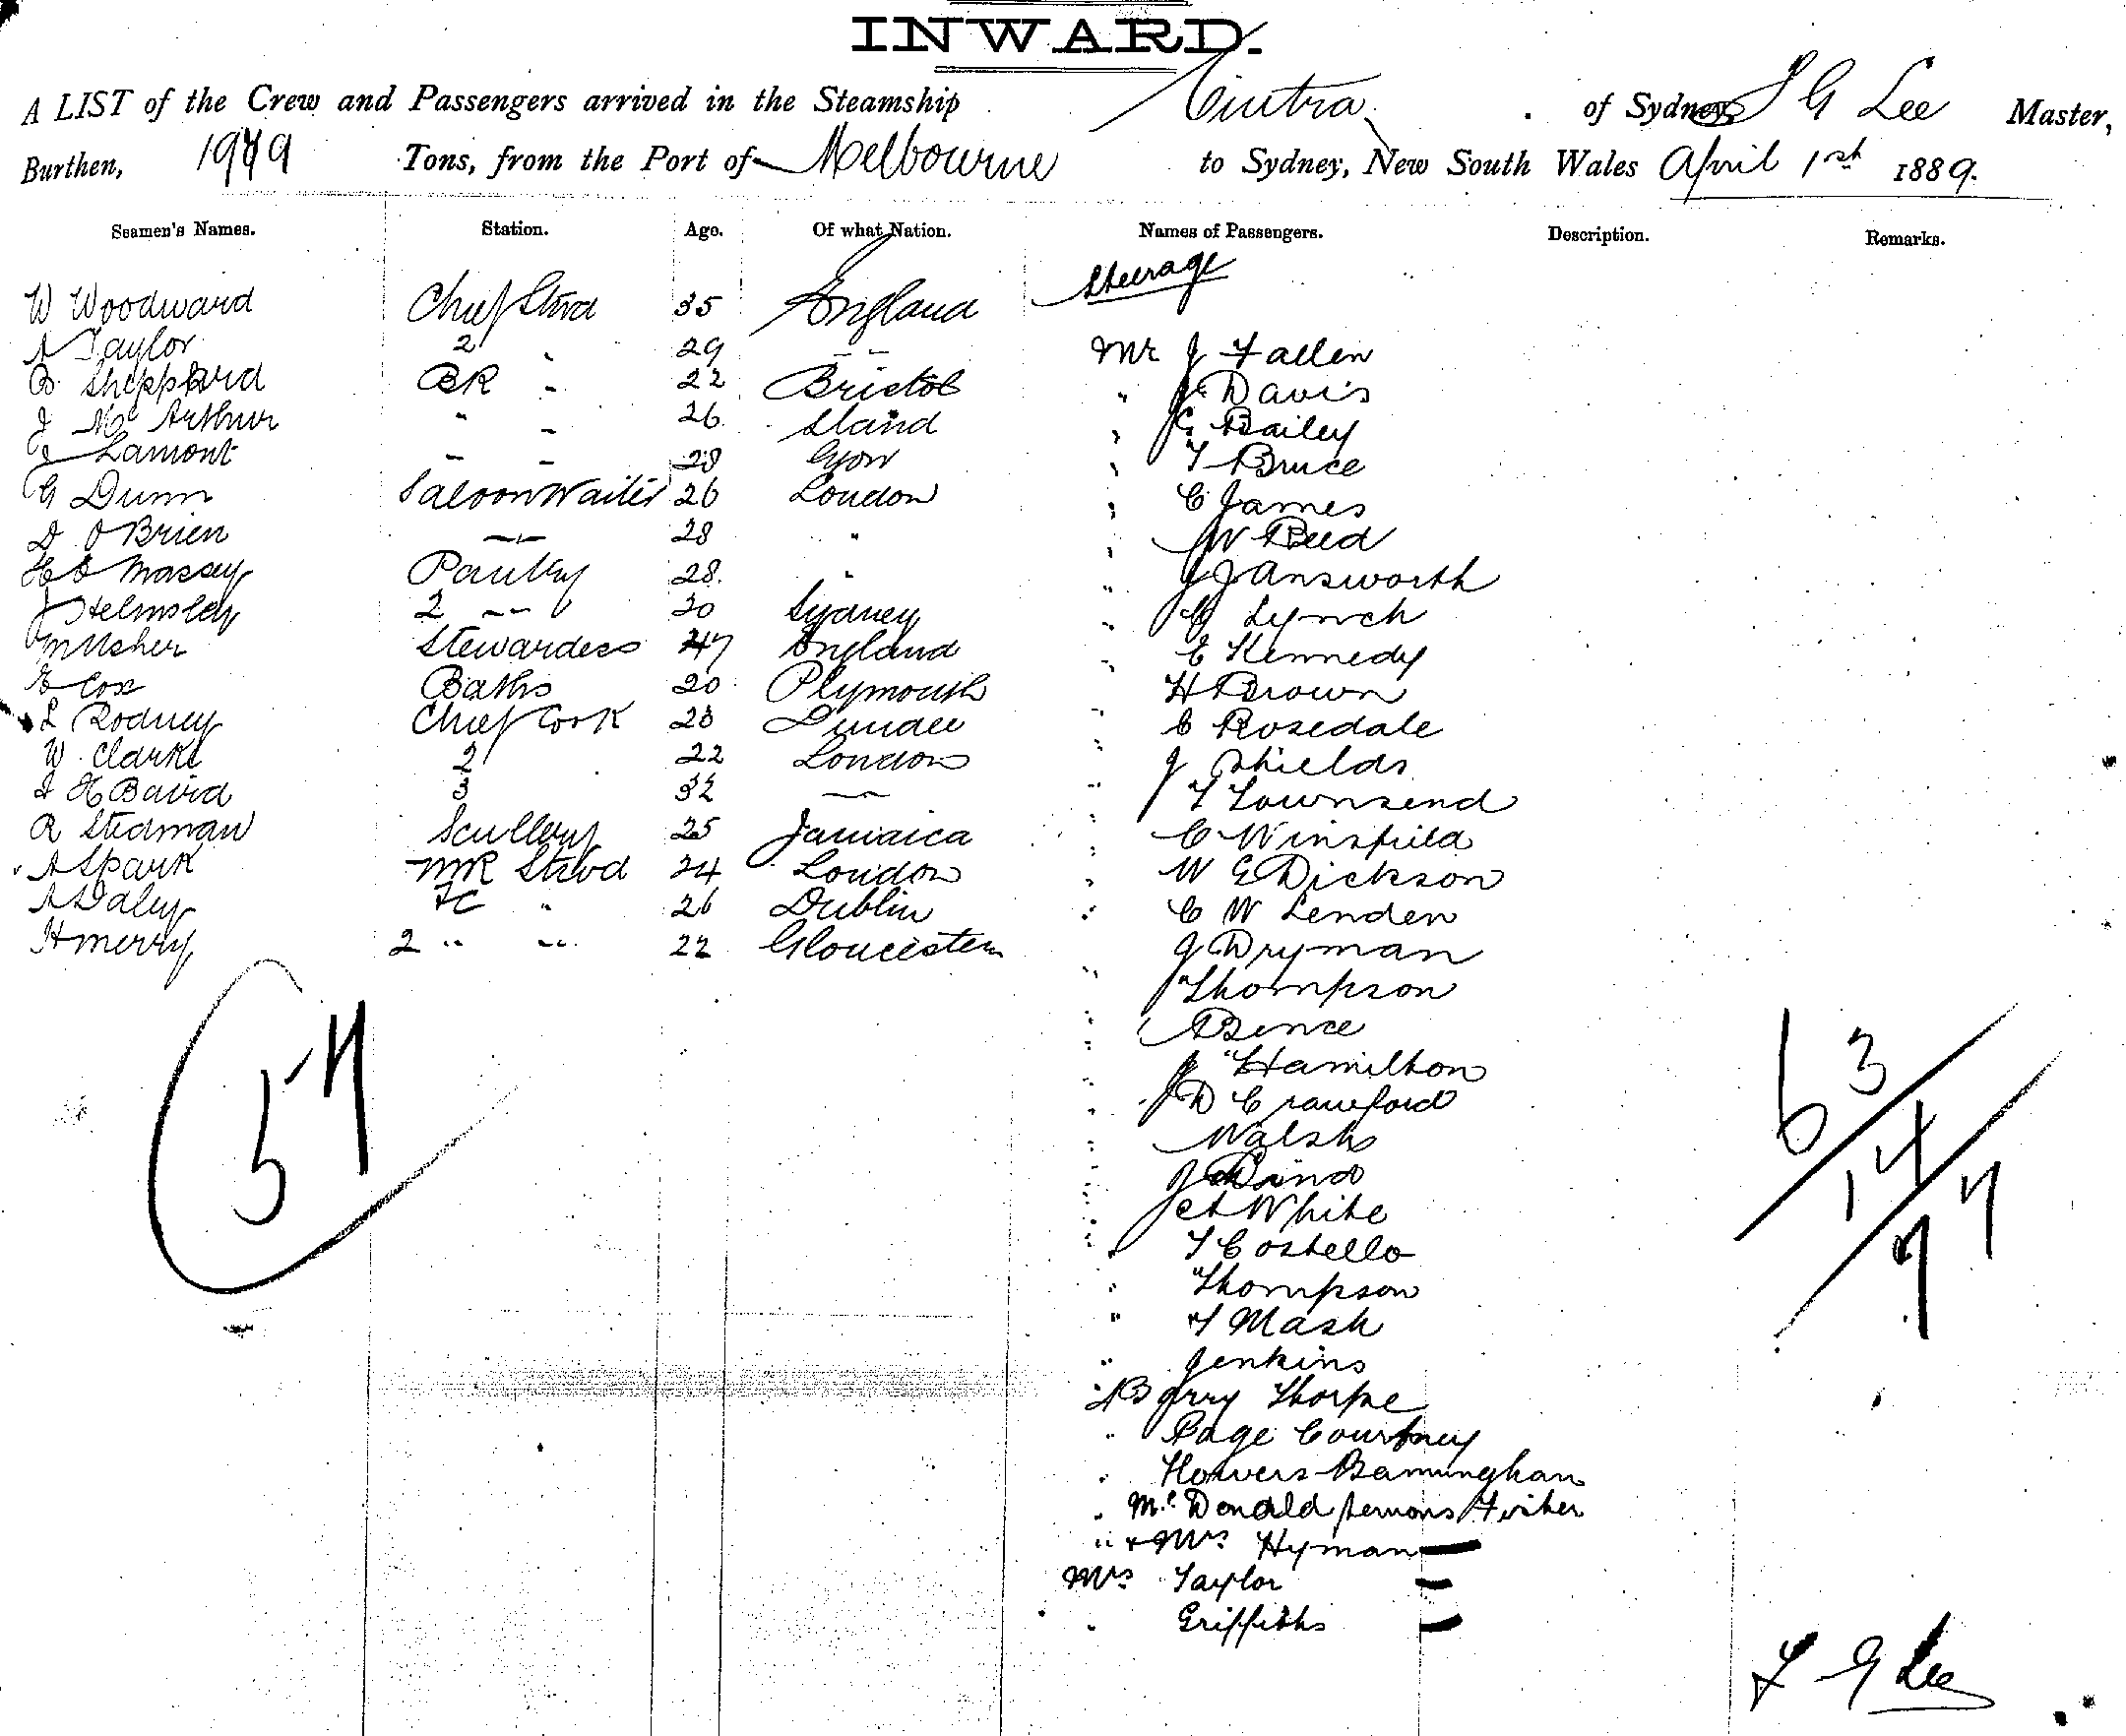 INWARD.
A LIST of the Crew and Passengers arrived in the Steamship Cintra of Sydney, G Lee Master,
Burthen, Tons, from the Port of Melbourne to Sydney, New South Wales April 1st 1889.
Seamen's Names. Station. Age. Of what Nation. Names of Passengers. Description. Remarks.
Steerage
W Woodward Chief Stwd 35 England
A Taylor 2 " 29 "
B. Sheppard BR " 22 Bristol
J McArthur " " 26
J Lamont " " 28
G Dunn Saloon Waiter 26 London
D OBrien " 28 "
Massey Pantry 28. "
J Helmsley 2 " 20 Sydney
M Usher Stewardess 47 England
E Cox Baths 20 Plymouth
L Rodney Chief Cook 28 Dundee
W. Clarke 2 22 London
J H Baird 3 32 "
R Stedman Scullery 25 Jamaica
A Spark MR Stwd 24 London
A Daley FC " 26 Dublin
H Merry 2 " " 22 Gloucester
Mr J Fallen
" J Davis
" G Bailey
" T Bruce
" C James
" W Reed
" J J Answorth
" G Lynch
" E Kennedy
" H Brown
" C Rosedale
" J Shields
" T Townsend
" C Winsfield
" W E Dickson
" C W Lenden
" J Dryman
" Thompson
" Bence
" J Hamilton
" J D Crawford
" Walsh
" J
" White
" T Costello
" Thompson
" T Mash
" Jenkins
" Barry Thorpe
" Page Courtney
" Howers Bamingham
" McDonald Fisher
" + Mrs Hyman
Mrs Taylor
" Griffiths
57
63
14
77
G Lee